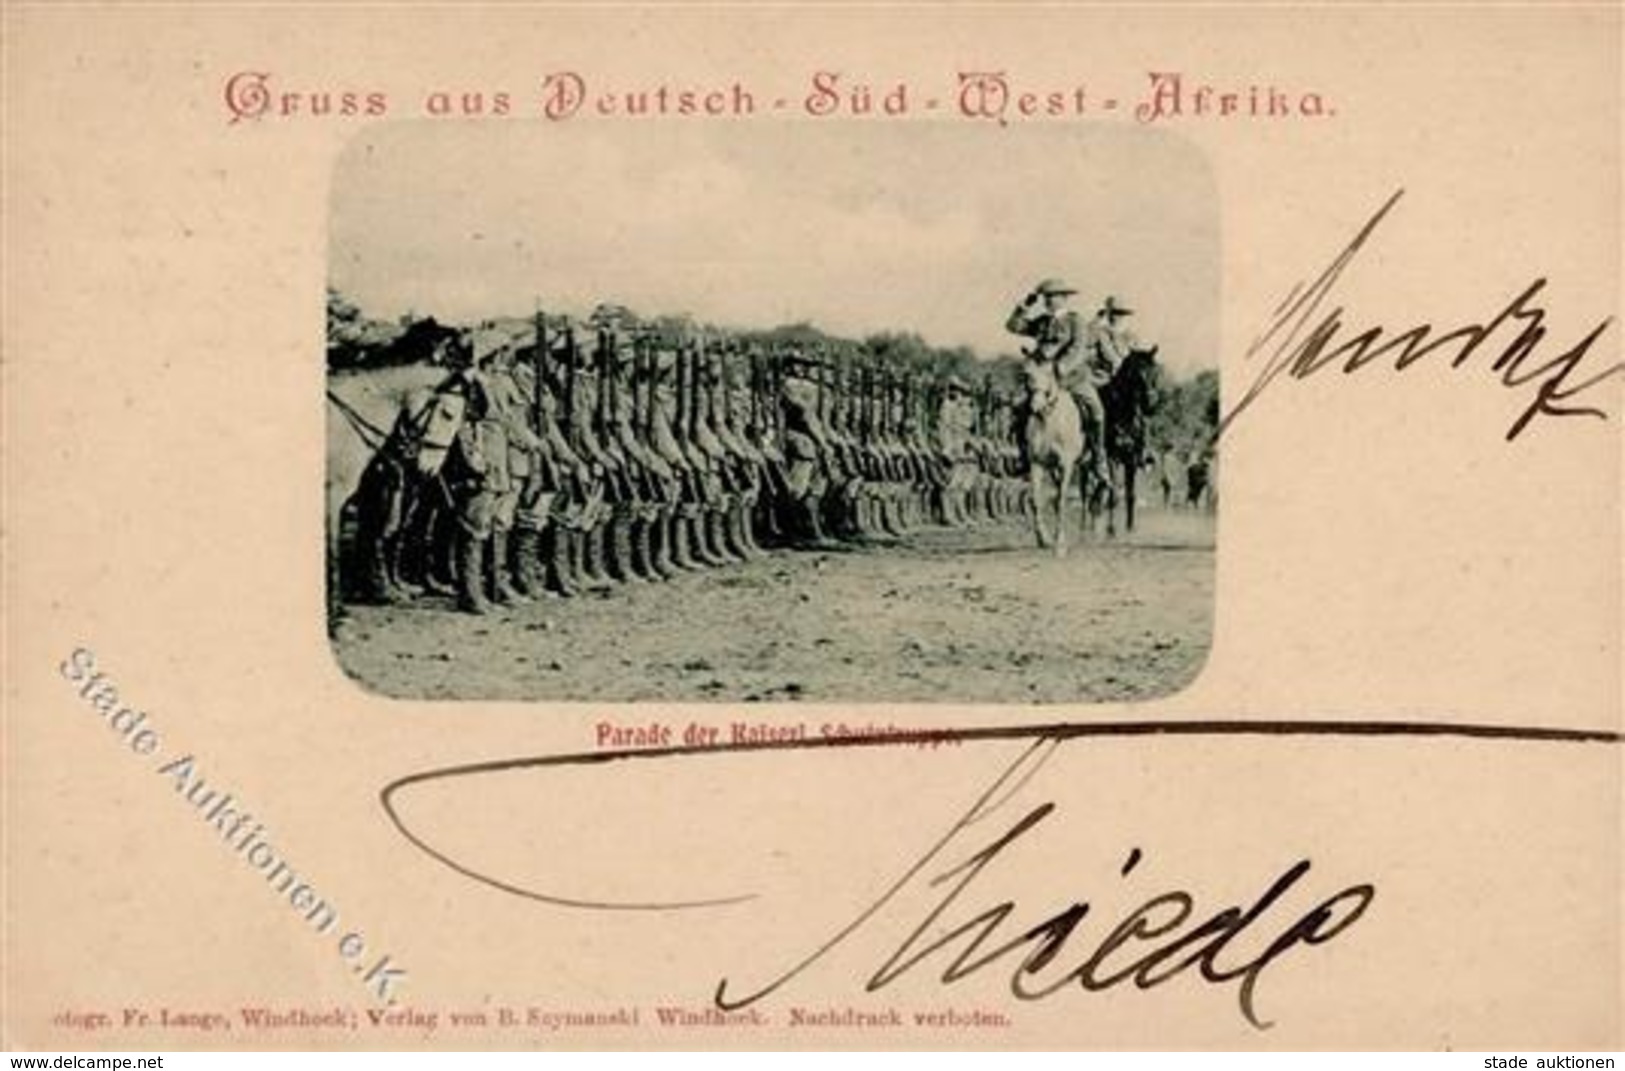 Gruss aus Deutsch-Süd-West-Afrika.
Parade der Kaiserl. Schutztruppe.
Friede
Stade Auktionen e.K.
otogr. Fr. Lange, Windhoek; Verlag von B. Szymanski Windhoek. Nachdruck verboten.
www.delcampe.net
stade auktionen